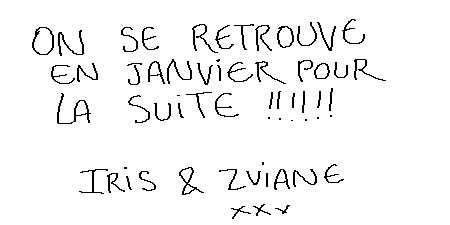 ON SE RETROUVE
EN JANVIER POUR
LA SUITE !!!!!!
IRIS & ZVIANE
xxx